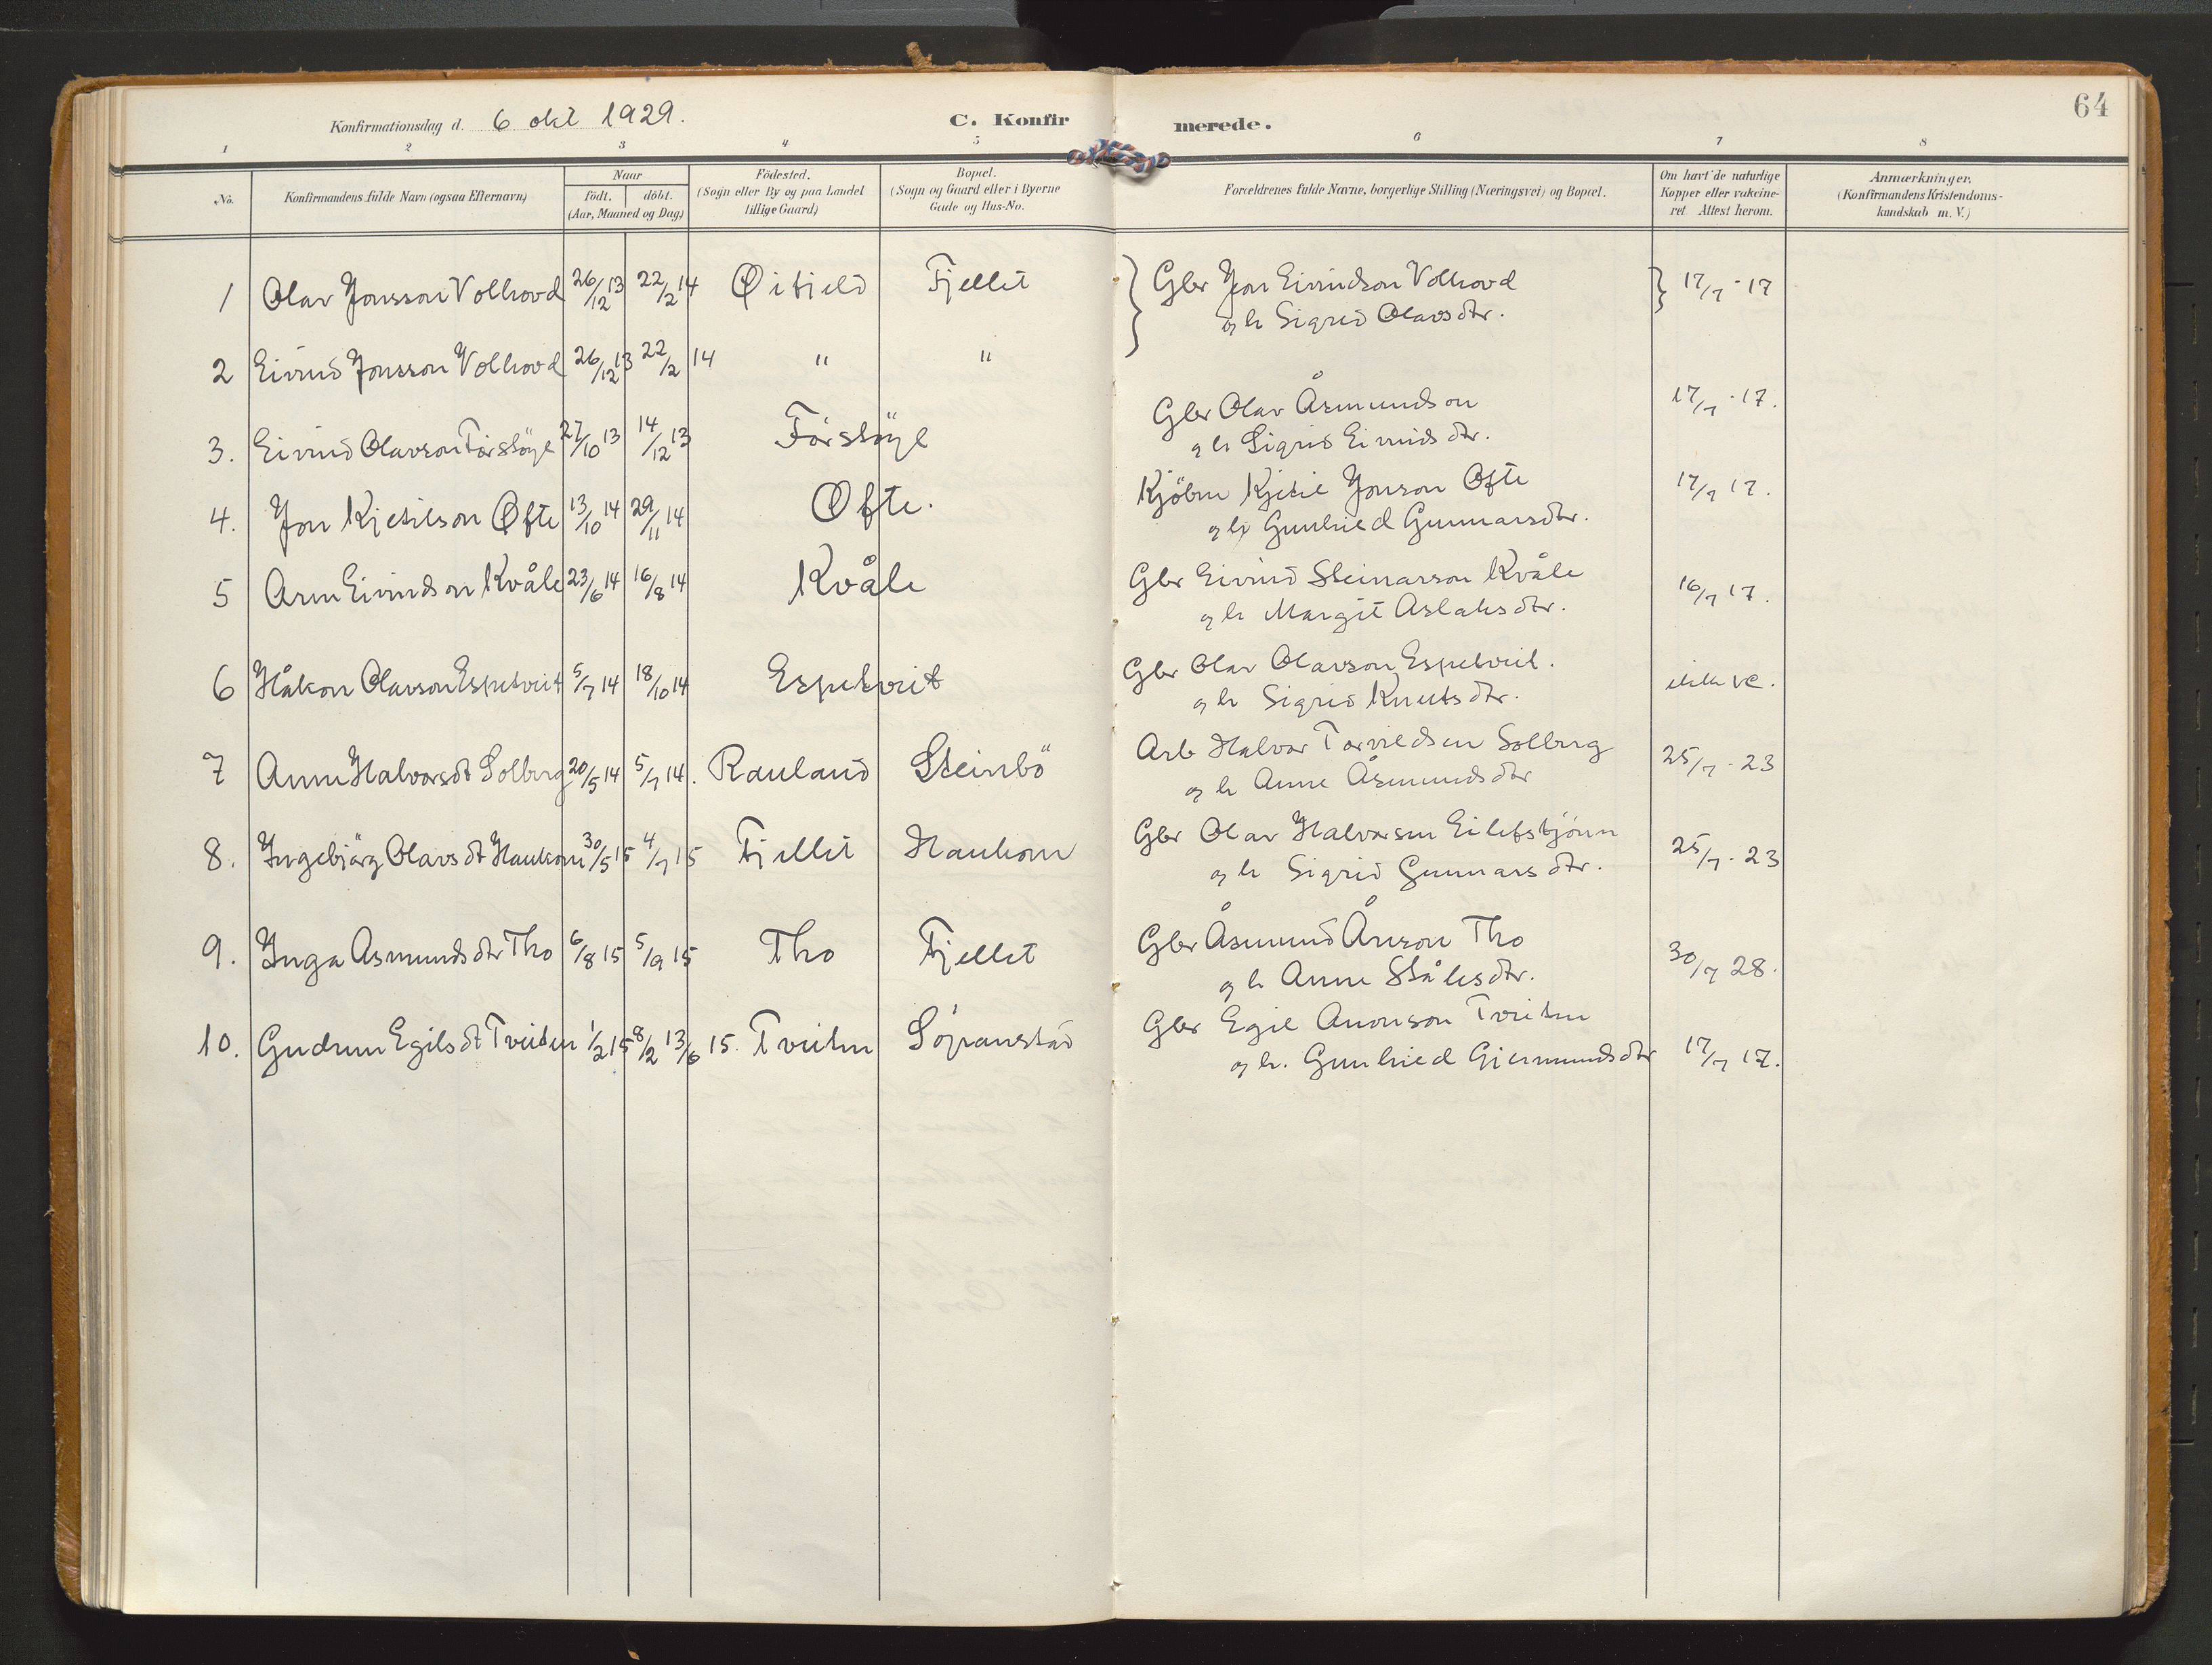 64
Konfirmationsdag d. 6 okt 1929.
C. Konfirmerede.
1 2 3 4 5 6 7 8
No. Konfirmandens fulde Navn (ogsaa Efternavn) Naar født, döbt. (Aar, Maaned og Dag) Födested. (Sogn eller By og paa Landet tillige Gaard) Bopæl. (Sogn og Gaard eller i Byerne Gade og Hus-No. Forældrenes fulde Navne, borgerlige Stilling (Næringsvei) og Bopæl. Om havt de naturlige Kopper eller vakcineret. Attest herom. Anmærkninger. (Konfirmandens Kristendomskundskab m. V.)
1 Olav Jonsson Vollhovd 26/12 13 22/2 14 Øifjeld Fjellet } Gbr Jon Eivindson Vollhovd } 17/7 - 17
og h Sigrid Olavsdtr.
2 Eivind Jonsson Vollhovd 26/12 13 22/2 14 " "
3. Eivind Olavson 27/10 13 14/12 13 Gbr Olav Åsmundson 17/7 - 17.
og h Sigrid Eivindsdtr.
4. Jon Kjetilson Øfte 13/10 14 29/11 14 Øfte. Kjøbm Kjetil Jonson Øfte 17/7 17.
og h Gunhild Gunnarsdtr.
5 Arne Eivindson Kvåle 23/6 14 16/8 14 Kvåle Gbr Eivind Steinarson Kvåle 16/7 17.
og h Margit Aslaksdtr.
6 Håkon Olavson Espetveit 5/7 14 18/10 14 Espetveit Gbr Olav Olavson Espetveit. ikke vc.
og h Sigrid Knutsdtr.
7 Anne Halvorsdt Solberg 20/5 14 5/7 14. Rauland Steinbö Arb Halvor Torvildsen Solberg 25/7 - 23
og h Anne Åsmundsdtr
8. Ingebjörg Olavsdt Haukom 30/5 15 4/7 15 Fjellet Haukom Gbr Olav Halvorsen Eilefstjönn 25/7 - 23
og h Sigrid Gunnarsdtr.
9. Inga Asmundsdtr Tho 6/8 15 5/9 15 Tho Fjellet Gbr Åsmund Ånson Tho 30/7 28.
og h Anne Ståles dtr.
10. Gudrun Egilsdt Tveiten 1/2 15 8/2 13/6 15. Tveiten Gbr Egil Anonson Tveiten 17/7 17.
og h. Gunhild Gjermundsdtr